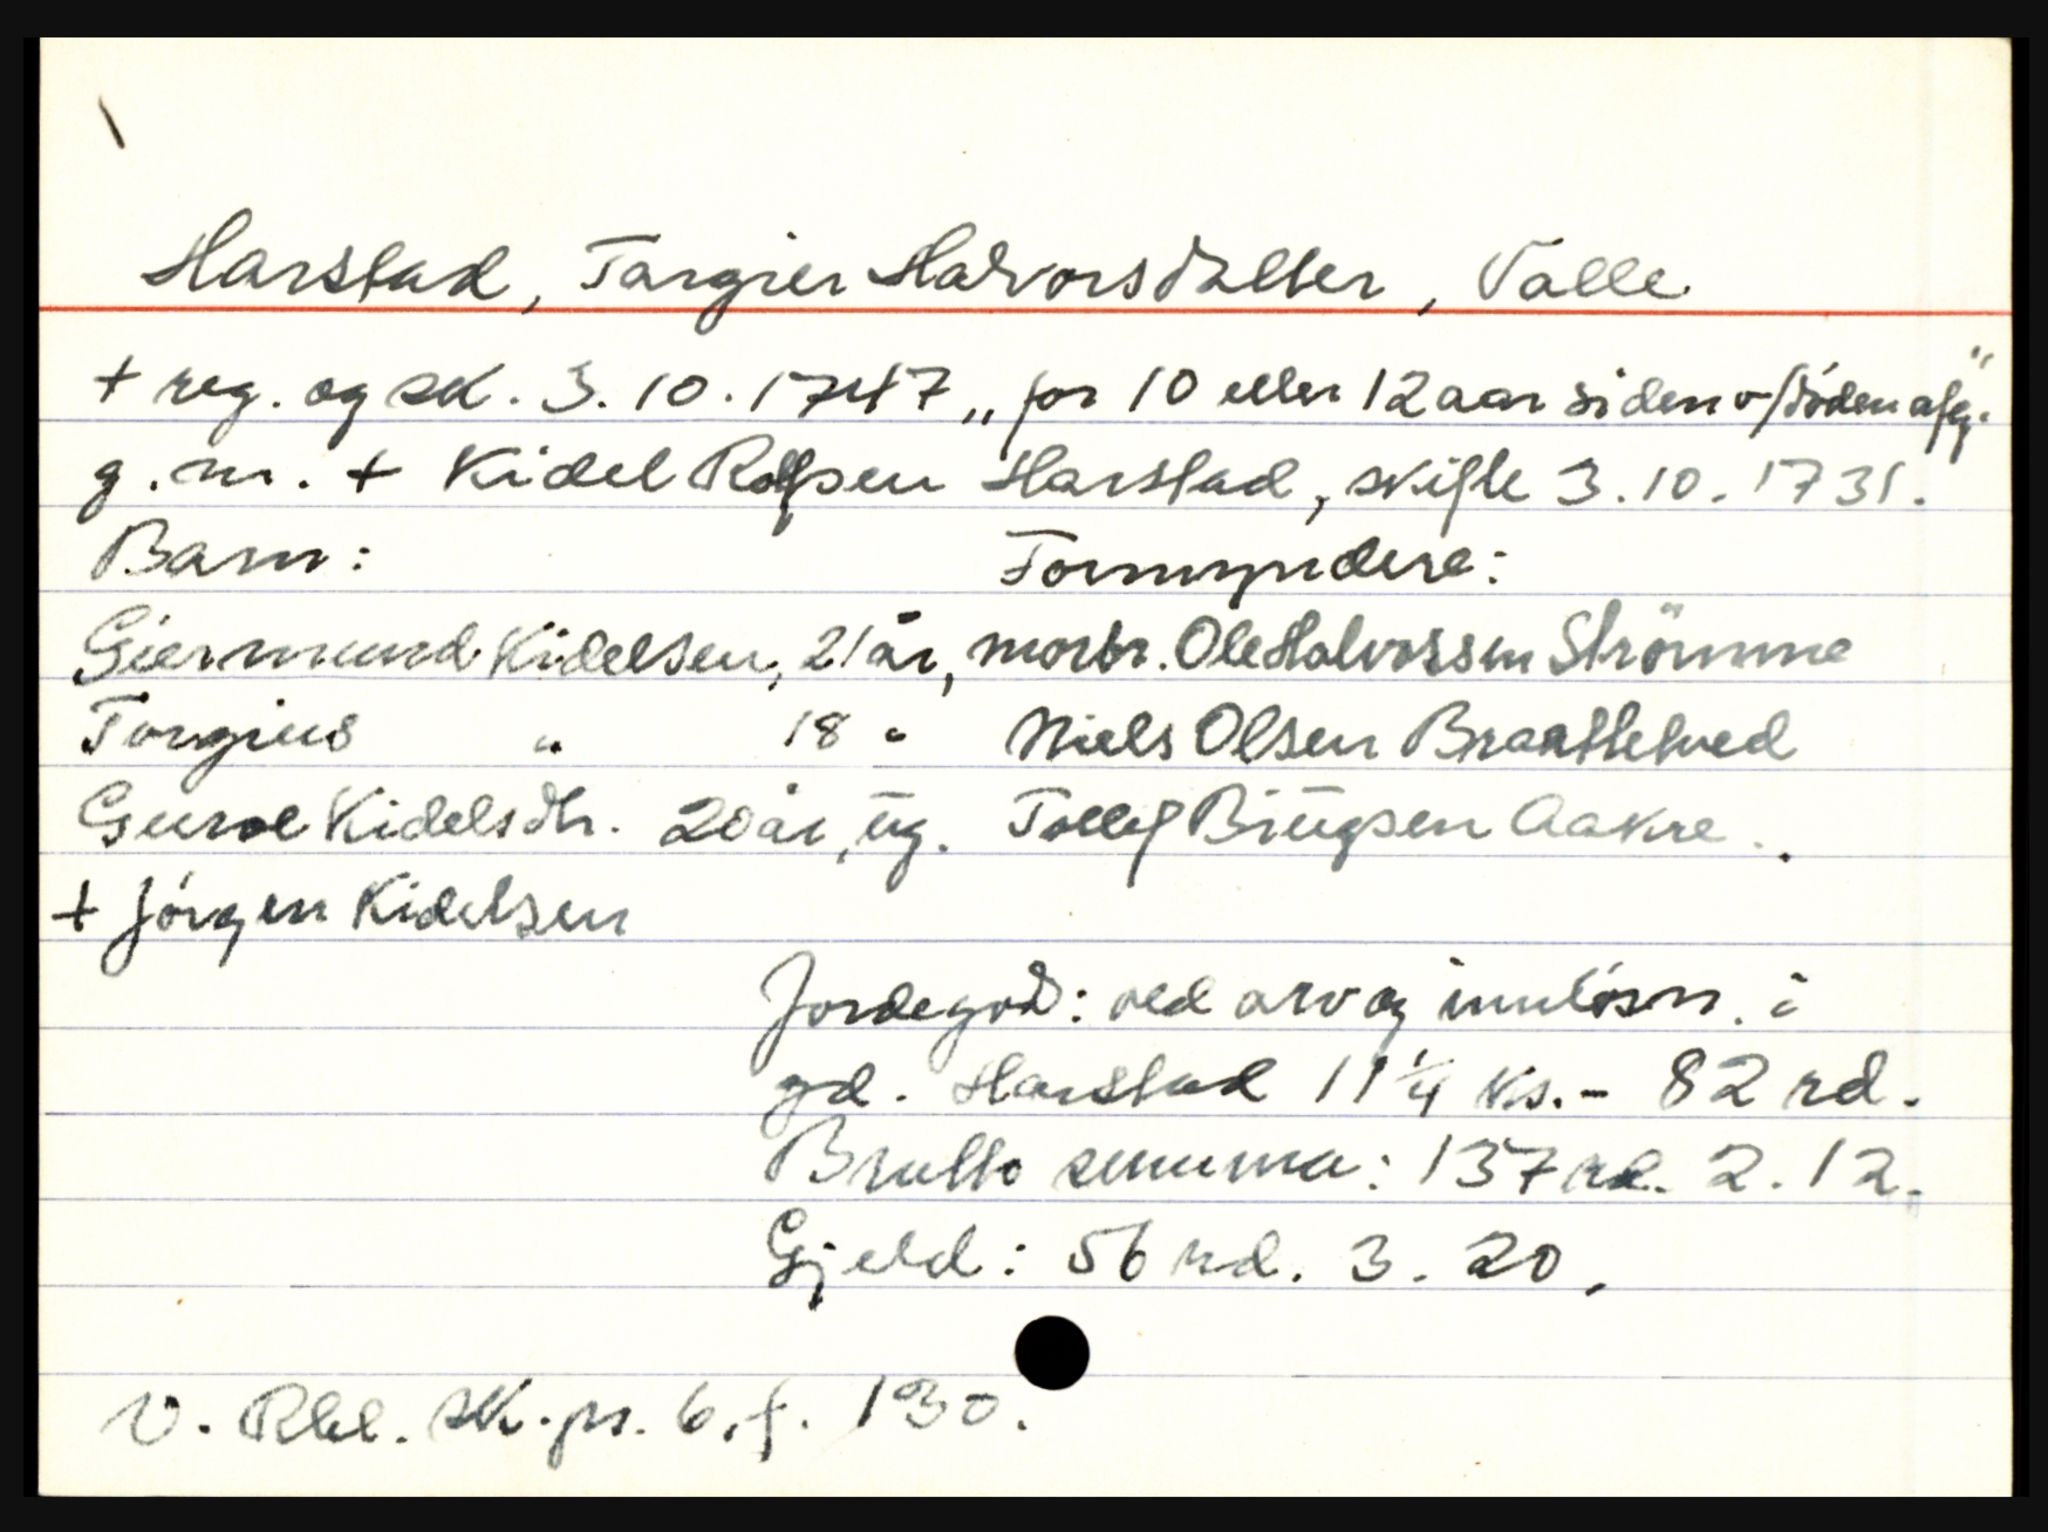 Harstad, Targier Halvorsdatter, Valle
+ reg. og sk. 3.10.1747 „for 10 eller 12 aar siden v/döden afg."
g.m. + Kidel Rolfsen Harstad, skifte 3.10.1731.
Barn: Formyndere:
Giermund Kidelsen, 21 år, morbr. Ole Halvorssen Strömme
Torgius " 18 " Niels Olsen Braattetved
Guroe Kidelsdtr. 20 år, ug. Tollef Biugsen Aakre.
+ Jörgen Kidelsen
Jordegods: ved arv og innlösn. i
gd. Harstad 11 1/4 ks. - 82 rd.
Brutto summa: 137 rd. 2.12.
Gjeld: 56 rd. 3.20.
V. Rbl. sk.pr. 6, f. 130.